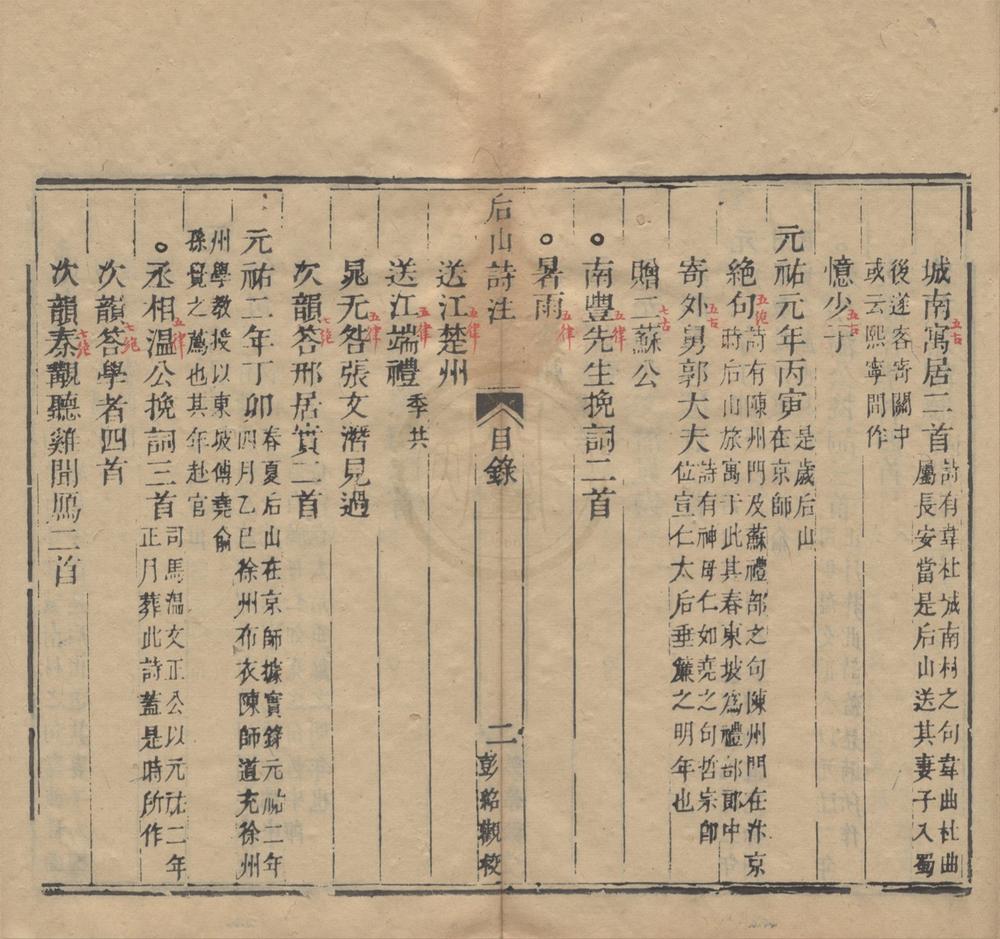 城南寓居二首詩有韋杜城南村之句韋曲杜曲屬長安當是后山送其妻子入蜀
五古
後遂客寄關中或云熙寧間作
憶少子
五古
元祐元年丙寅是歲后山在京師
絕句詩有陳州門及蘇禮部之句陳州門在汴京時后山旅寓于此其春東坡為禮部郎中
五絕
寄外舅郭大夫詩有神母仁如堯之句哲宗即位宣仁太后垂簾之明年也
五古
贈二蘇公
七古
南豐先生挽詞二首
五律
暑雨
五律
后山詩注
目錄
二
彭銘觀校
送江楚州
五律
送江端禮季共
五律
晁无咎張文潛見過
五律
次韻答邢居實二首
七絕
元祐二年丁卯春夏后山在京師據實錄元祐二年四月乙巳徐州布衣陳師道充徐州
州學教授以東坡傅堯俞孫覺之薦也其年赴官
丞相溫公挽詞三首司馬溫文正公以元祐二年正月葬此詩蓋是時所作
五律
次韻答學者四首
七絕
次韻秦覯聽雞聞鴈二首
七絕